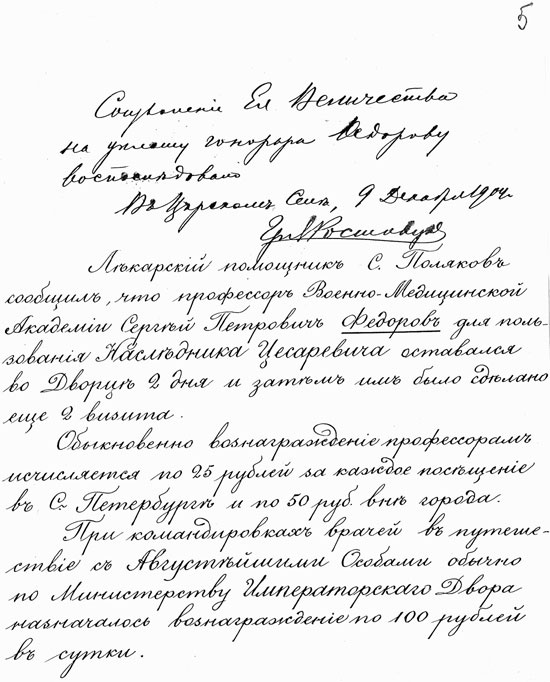 5
Соизволеніе Ея Величества
на уплату гонорара Ѳедорову
воспослѣдовало
Въ Царскомъ Селѣ, 9 Декабря 1904
Гр. Я Ростовцев
Лѣкарскій помощникъ С. Поляковъ
сообщилъ, что профессоръ Военно-Медицинской
Академіи Сергѣй Петровичъ Федоровъ для поль-
зованія Наслѣдника Цесаревича оставался
во Дворцѣ 2 дня и затѣмъ имъ было сдѣлано
еще 2 визита.
Обыкновенно вознагражденіе профессорамъ
исчисляется по 25 рублей за каждое посѣщеніе
въ С.-Петербургѣ и по 50 руб. внѣ города.
При командировкахъ врачей въ путеше-
ствіе съ Августѣйшими Особами обычно
по Министерству Императорскаго Двора
назначалось вознагражденіе по 100 рублей
въ сутки.